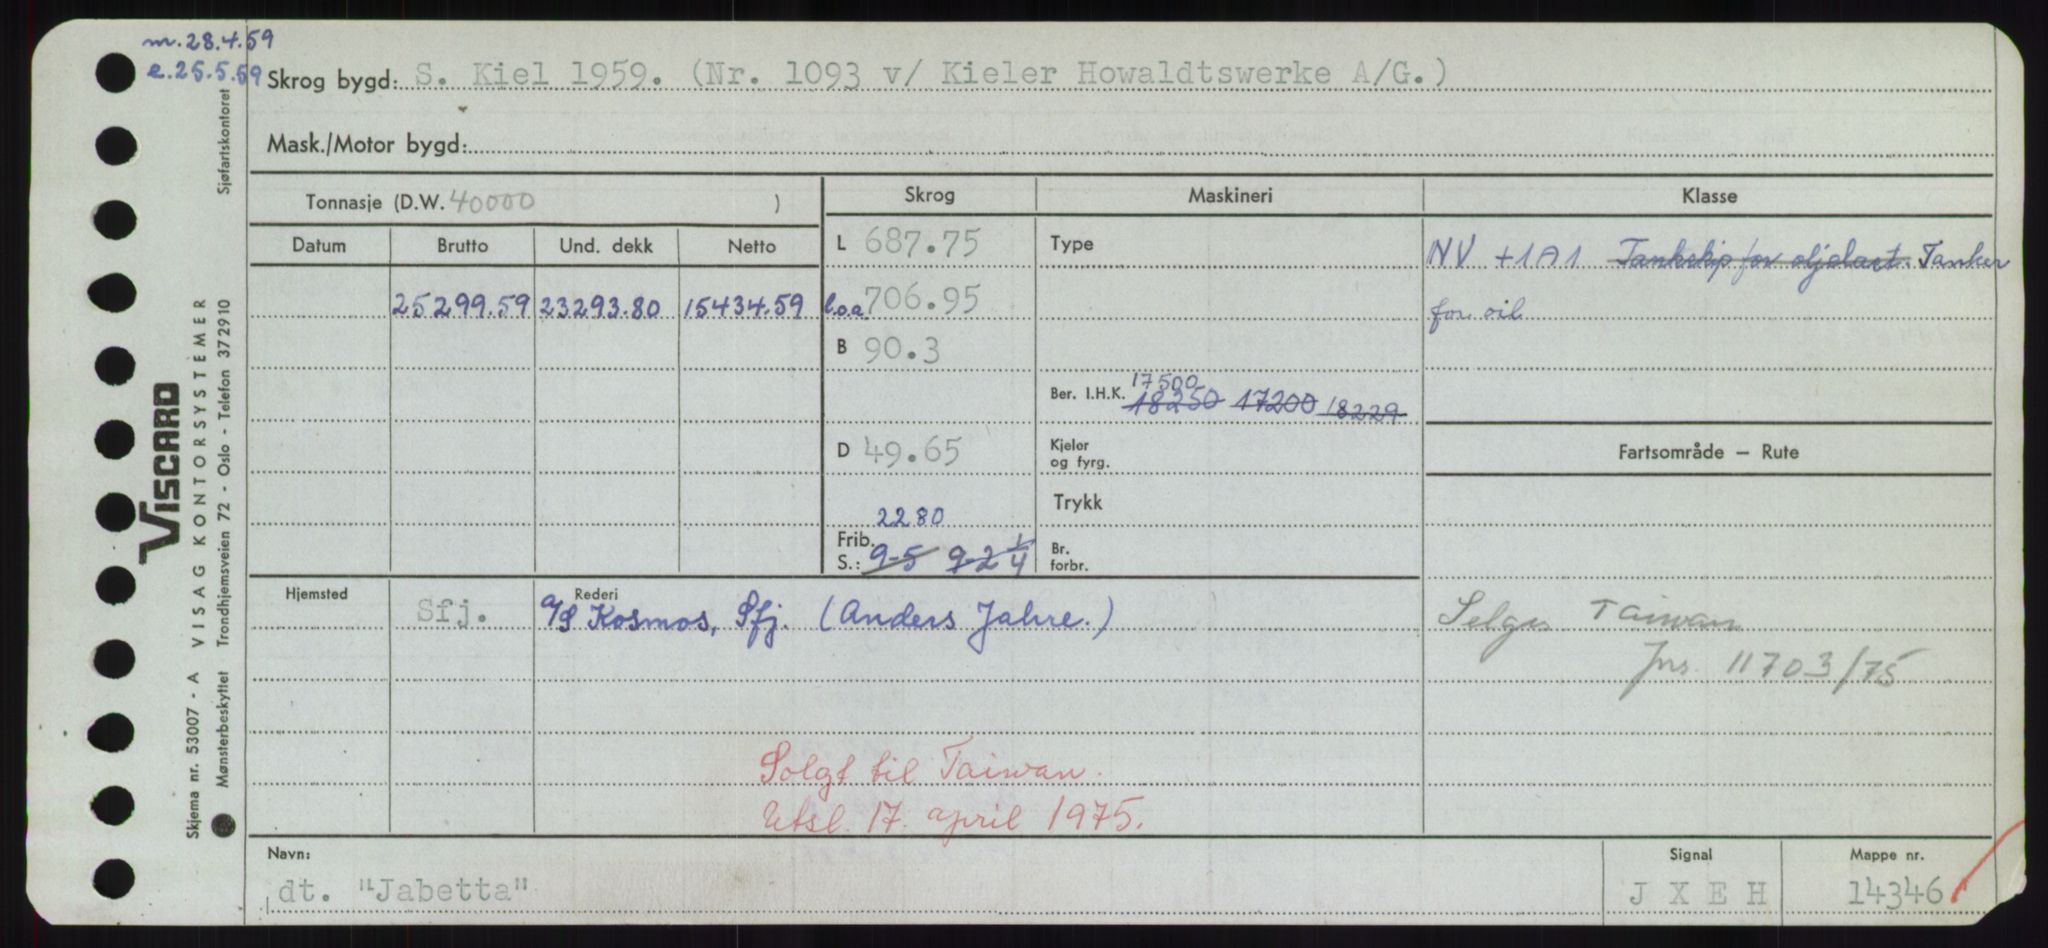 m.28.4.59
e.25.5.59
Skrog bygd: S. Kiel 1959. (Nr. 1093 v/ Kieler Howaldtswerke A/G.)
Mask./Motor bygd:
Tonnasje (D.W. 40000 ) Skrog Maskineri Klasse
Datum Brutto Und. dekk Netto L 687.75 Type NV +1A1 Tankskip for oljelast. Tanker
25299.59 23293.80 15434.59 l.o.a. 706.95 for oil
B 90.3
17500
Ber. I.H.K. 18250 17200 18229
D 49.65 Kjeler og fyrg. Fartsområde — Rute
Trykk
2280
Frib. S.: 9-5 9-2 1/4 Br. forbr.
Hjemsted Sfj. Rederi A/S Kosmos, Sfj. (Anders Jahre.) Selges Taiwan
Jnr. 11703/75
Solgt til Taiwan.
Utsl. 17. april 1975.
Navn: Signal Mappe nr.
dt. "Jabetta" J X E H 14346
VISCARD
VISAG KONTORSYSTEMER
Skjema nr. 53007 - A
Mønsterbeskyttet Trondhjemsveien 72 - Oslo - Telefon 372910 Sjøfartskontoret